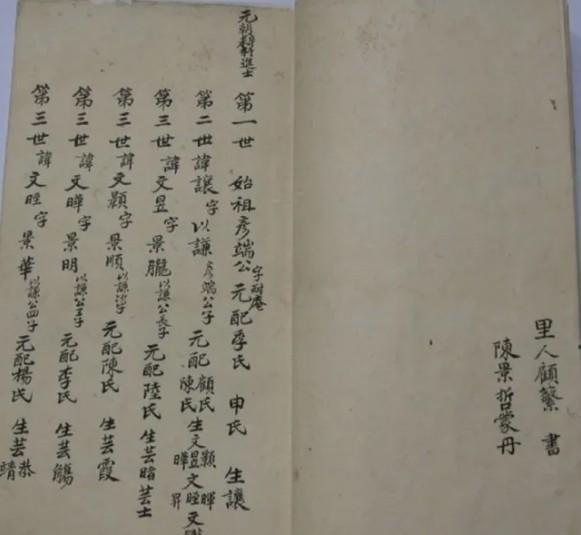 里人顧蘩書
陳景哲蒙丹
元朝辛未科進士
第一世 始祖彥端公字耐庵 元配季氏 申氏 生讓
第二世諱讓字以謙彥端公子 元配顧氏陳氏 生文昱顥曄文晊暉昇文
第三世諱文昱字景朧以謙公長子 元配陸氏 生芸曙芸士
第三世諱文顥字景順以謙公次子 元配陳氏 生芸霞
第三世諱文曄字景明以謙公三子 元配李氏 生芸觴
第三世諱文晊字景華以謙公四子 元配楊氏 生芸恭靖